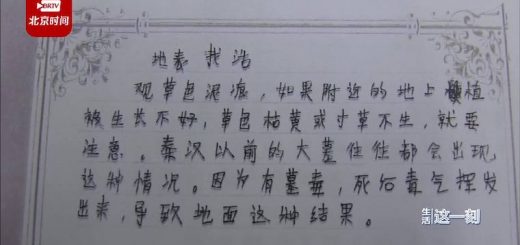 BRTV
北京时间
地表 我浩
观草色泥痕,如果附近的地上植
被生长不好,草色枯黄或寸草不生,就要
注意。秦汉以前的大墓往往都会出现
这种情况。因为有墓毒,死后毒气挥发
出来,导致地面这种结果。
生活这一刻